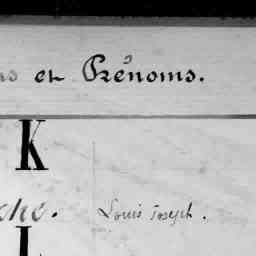 et Prénoms.
K
che. Louis Joseph.
L